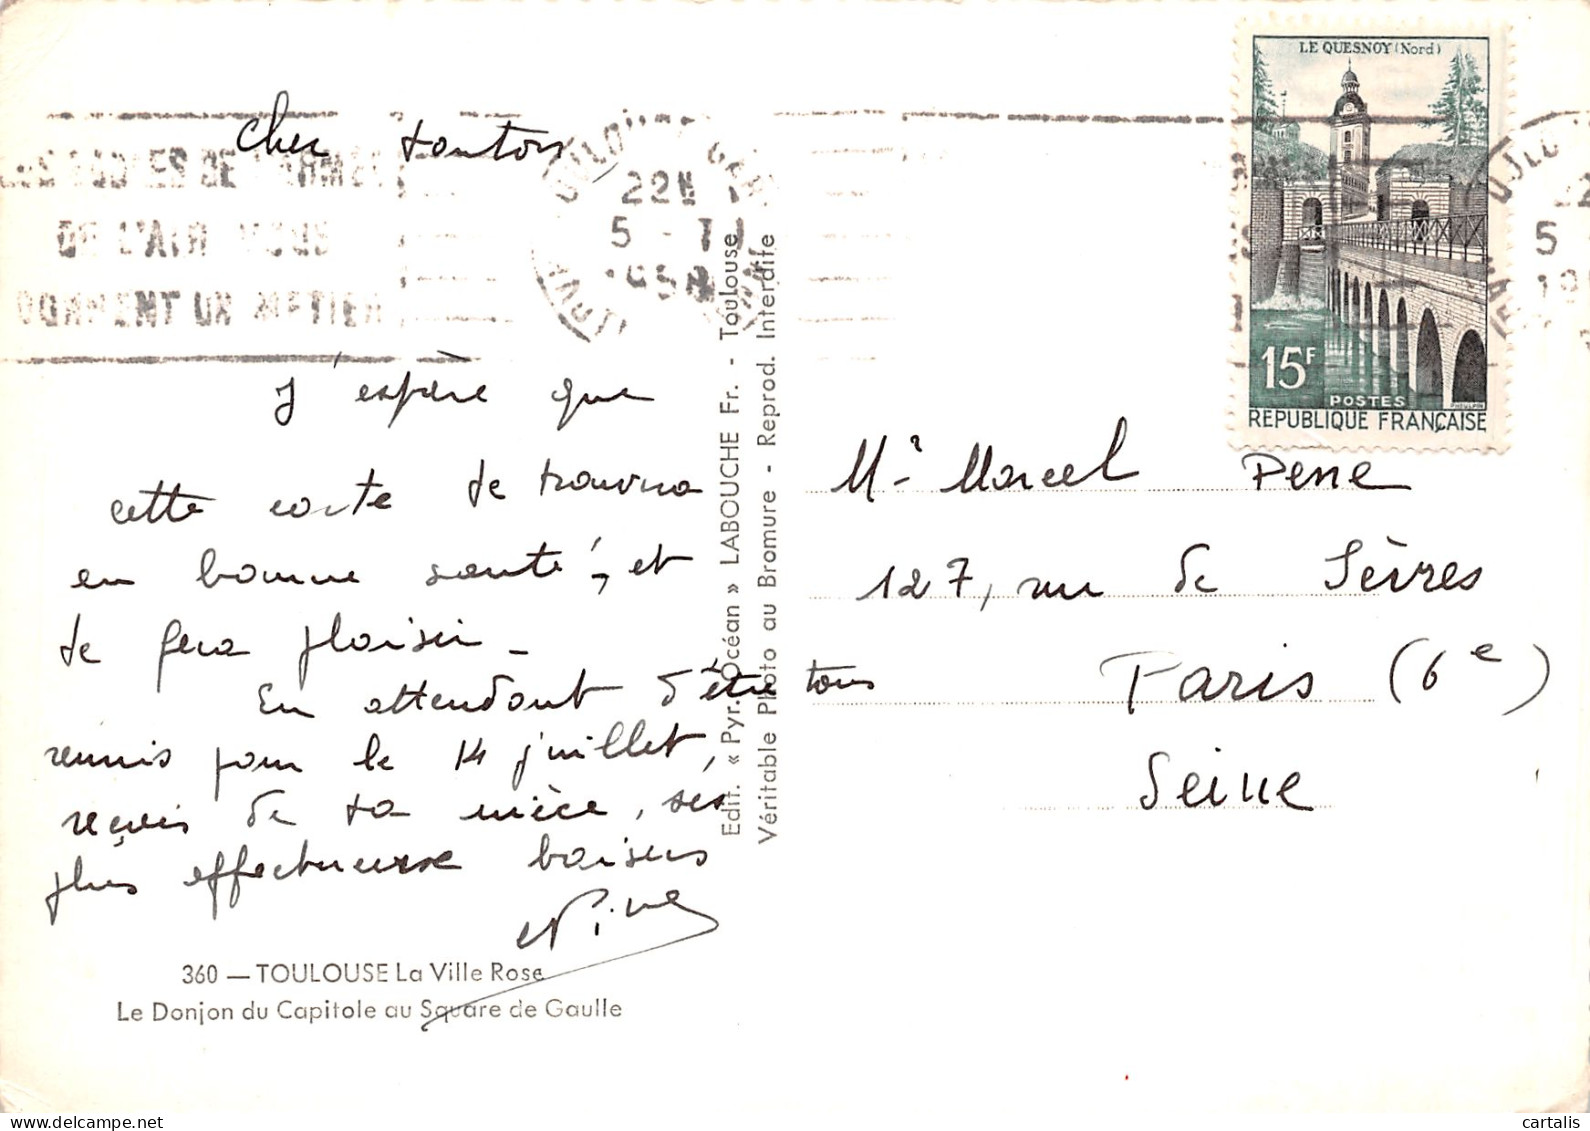 Cher tonton
J'espère que
cette carte te trouvera
en bonne santé, et
te fera plaisir_
En attendant d'être tous
réunis pour le 14 juillet,
reçois de ta nièce, ses
plus affectueux baisers
Nine
360 — TOULOUSE La Ville Rose
Le Donjon du Capitole au Square de Gaulle
ECOLES DE L'ARMEE
DE L'AIR VOUS
DONNENT UN METIER
TOULOUSE GARE
22H
5 - 7
1958
Edit. « Pyr. Océan » LABOUCHE Fr. - Toulouse
Véritable Photo au Bromure - Reprod. Interdite
LE QUESNOY (Nord)
15F
POSTES
REPUBLIQUE FRANÇAISE
Mr Marcel Pene
127, rue de Sèvres
Paris (6e)
Seine
cartalis
www.delcampe.net